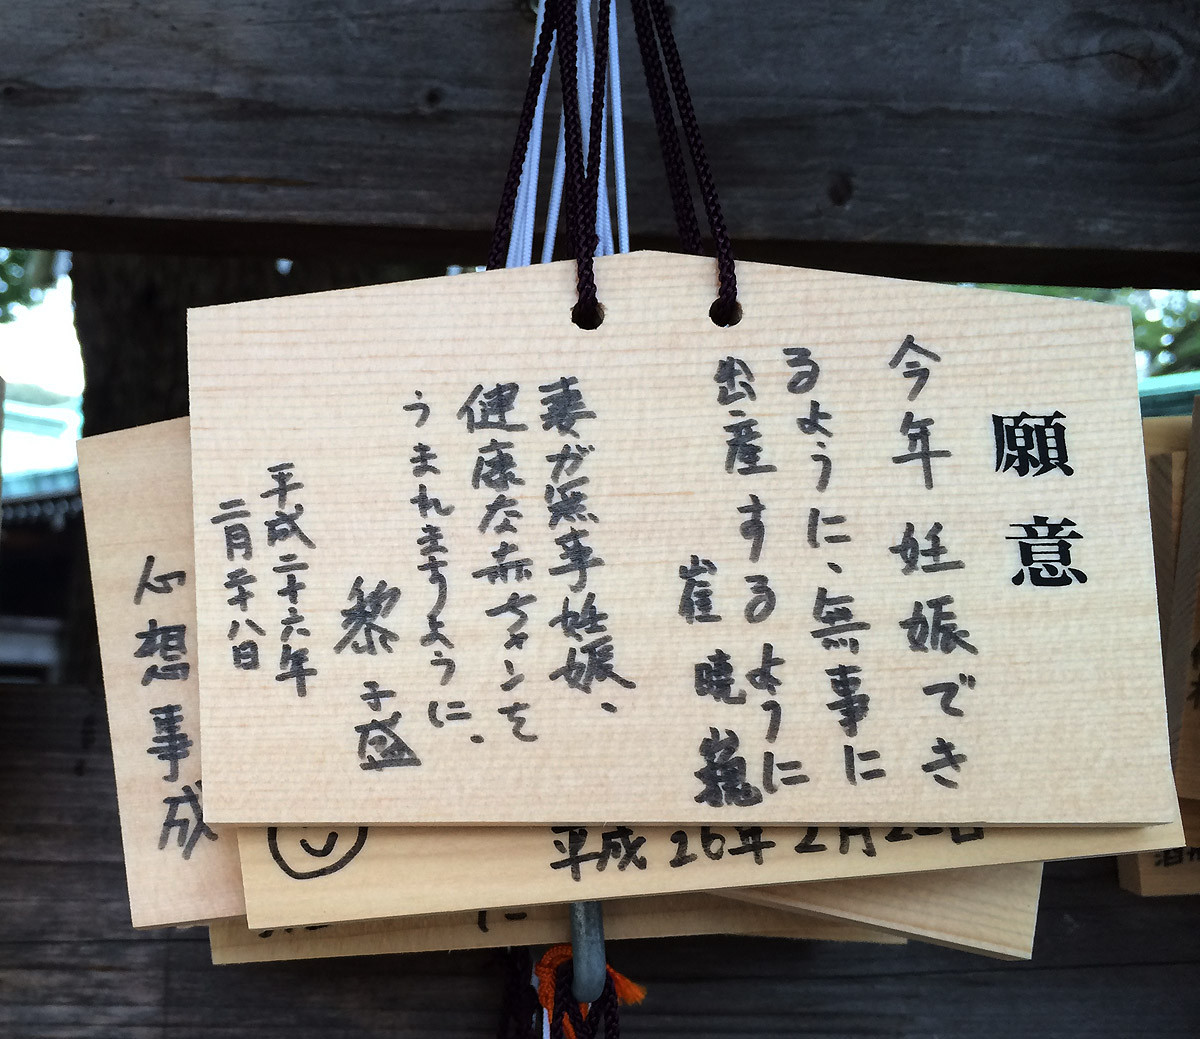 願意
今年妊娠でき
るように、無事に
出産するように
崔 暁巍
妻が無事妊娠、
健康な赤ちゃんを
うまれますように。
黎子盛
平成二十六年
二月二十八日
心想事成
平成26年2月